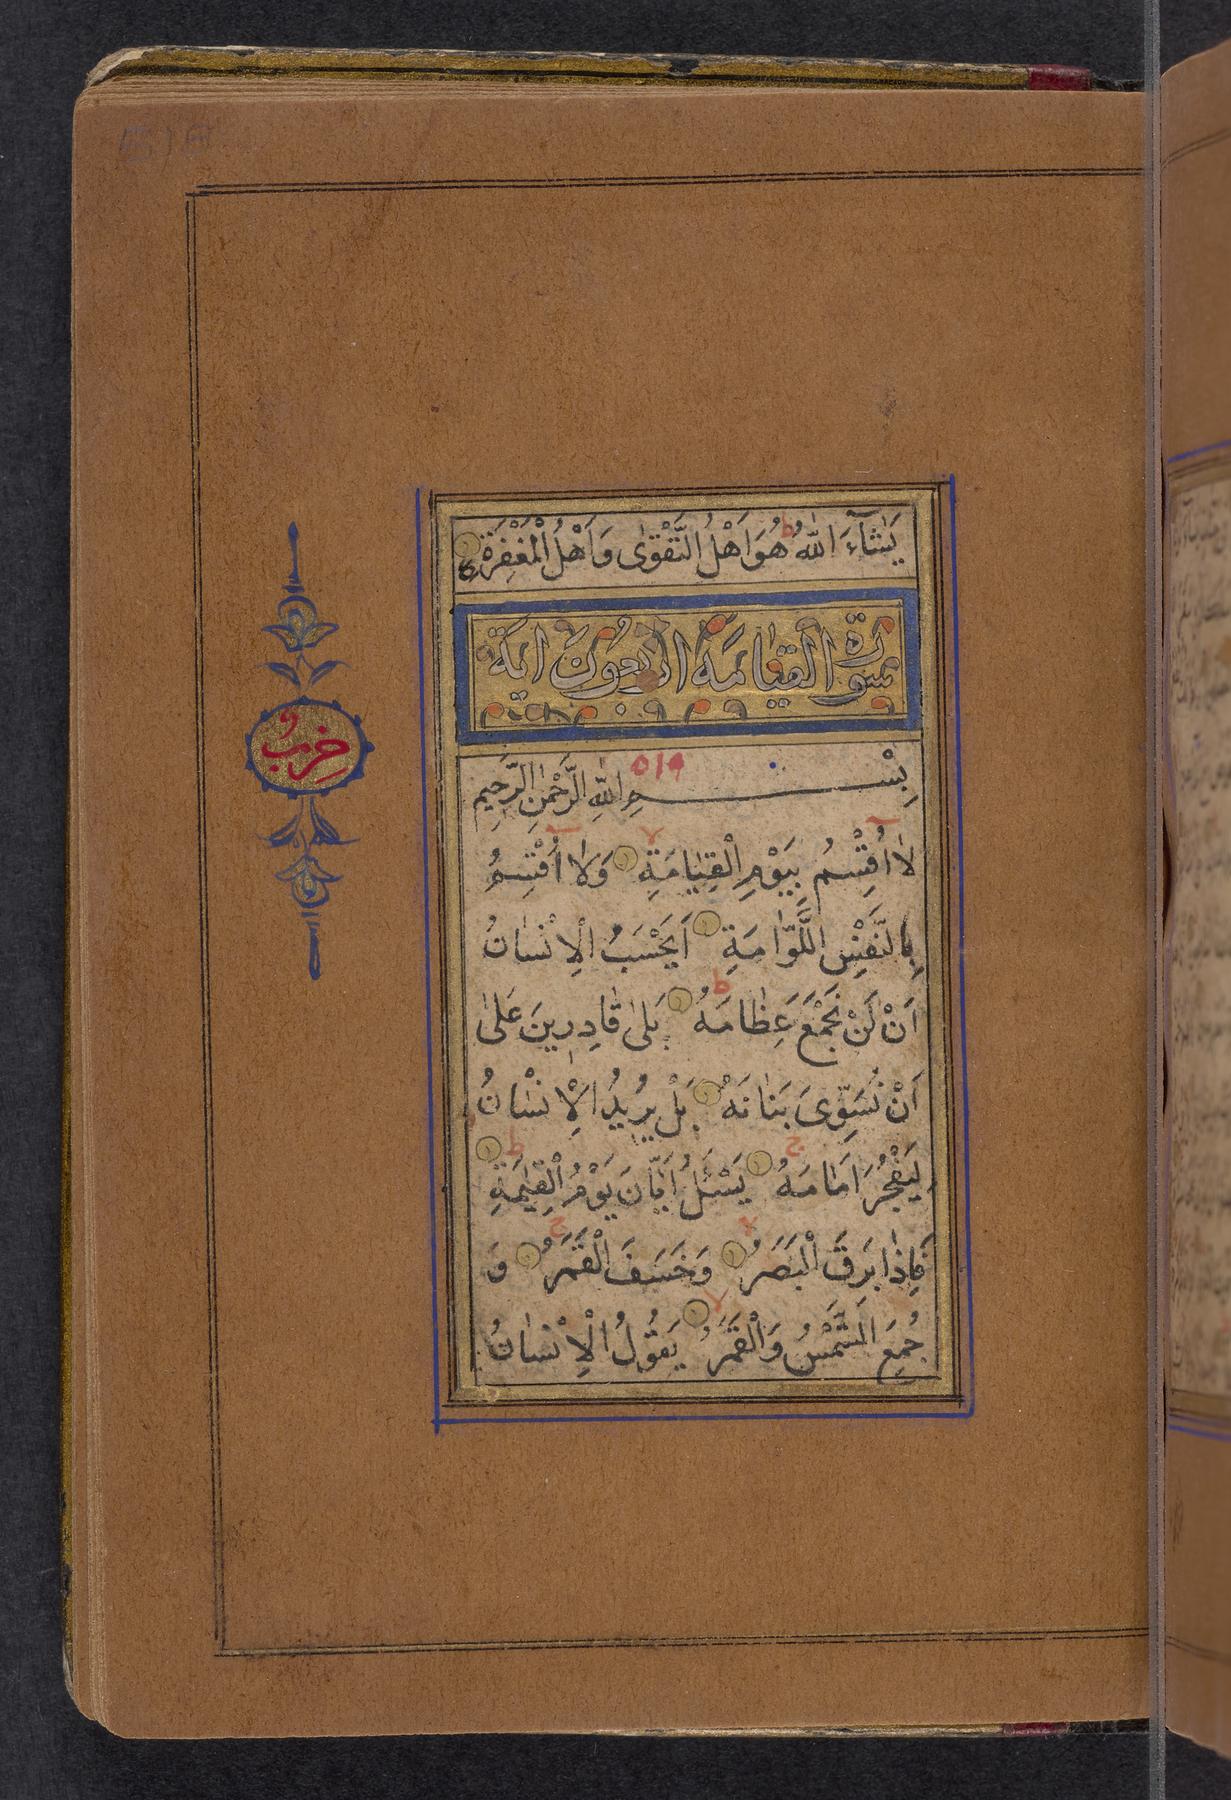 يَشَآءَ اللّٰهُ هُوَ اَهْلُ التَّقْوٰى وَ اَهْلُ الْمَغْفِرَةِ
سورة القيٰمة اربعون اية
بِسْمِ اللّٰهِ الرَّحْمٰنِ الرَّحِيمِ
لٰا اُقْسِمُ بِيَوْمِ الْقِيٰامَةِ وَلٰا اُقْسِمُ
بِالنَّفْسِ اللَّوّٰامَةِ اَيَحْسَبُ الْاِنْسٰانُ
اَنْ لَنْ نَجْمَعَ عِظٰامَهُ بَلىٰ قٰادِرِينَ عَلىٰ
اَنْ نُسَوِّىَ بَنٰانَهُ بَلْ يُرِيدُ الْاِنْسٰانُ
لِيَفْجُرَ اَمٰامَهُ يَسْئَلُ اَيّٰانَ يَوْمُ الْقِيٰمَةِ
فَاِذٰا بَرِقَ الْبَصَرُ وَخَسَفَ الْقَمَرُ وَ
جُمِعَ الشَّمْسُ وَالْقَمَرُ يَقُولُ الْاِنْسٰانُ
حزب